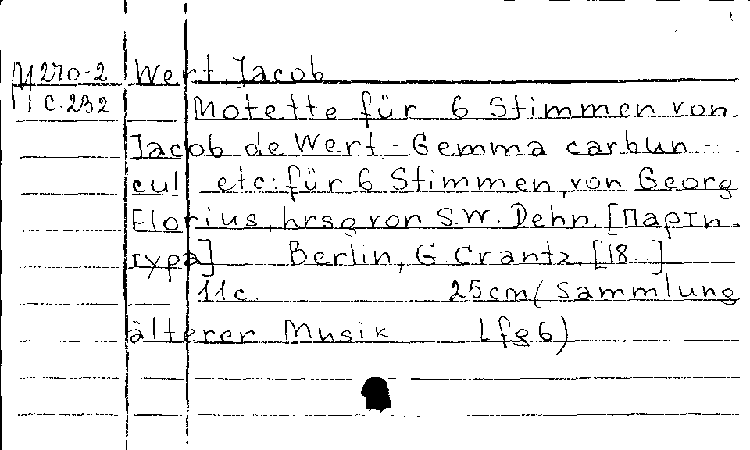 М 270-2 Wert, Jacob
С. 232 Motette für 6 Stimmen von
Jacob de Wert - Gemma carbun-
cul etc: für 6 Stimmen, von Georg
Florius, hrsg von S.W. Dehn. [Парти-
тура] Berlin, G Crantz. [18 ]
11 с. 25 cm (Sammlung
älterer Musik Lfg 6)